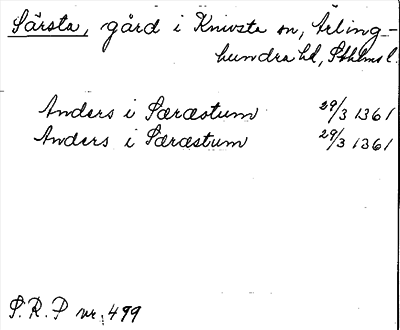 Särsta, gård i Knivsta sn, Ärling-
hundra hd, Sthlms l.
Anders i Særæstum 29/3 1361
Anders i Særæstum 29/3 1361
S.R.P nr. 499